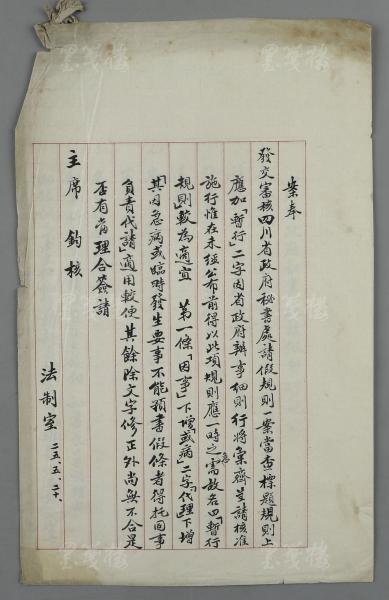 案奉
發交審核四川省政府秘書處請假規則一案當查標題規則上
應加「暫行」二字因省政府辦事細則行將彙齊呈請核准
施行惟在未經公布前得以此項規則應一時之急需故名曰「暫行
規則」較為適宜 第一條「因事」下增「或病」二字「代理」下增
「其因急病或臨時發生要事不能預書假條者得托同事
負責代請」適用較便其餘除文字修正外尚無不合是
否有當理合簽請
主席鈞核
法制室 二五、五、二十、